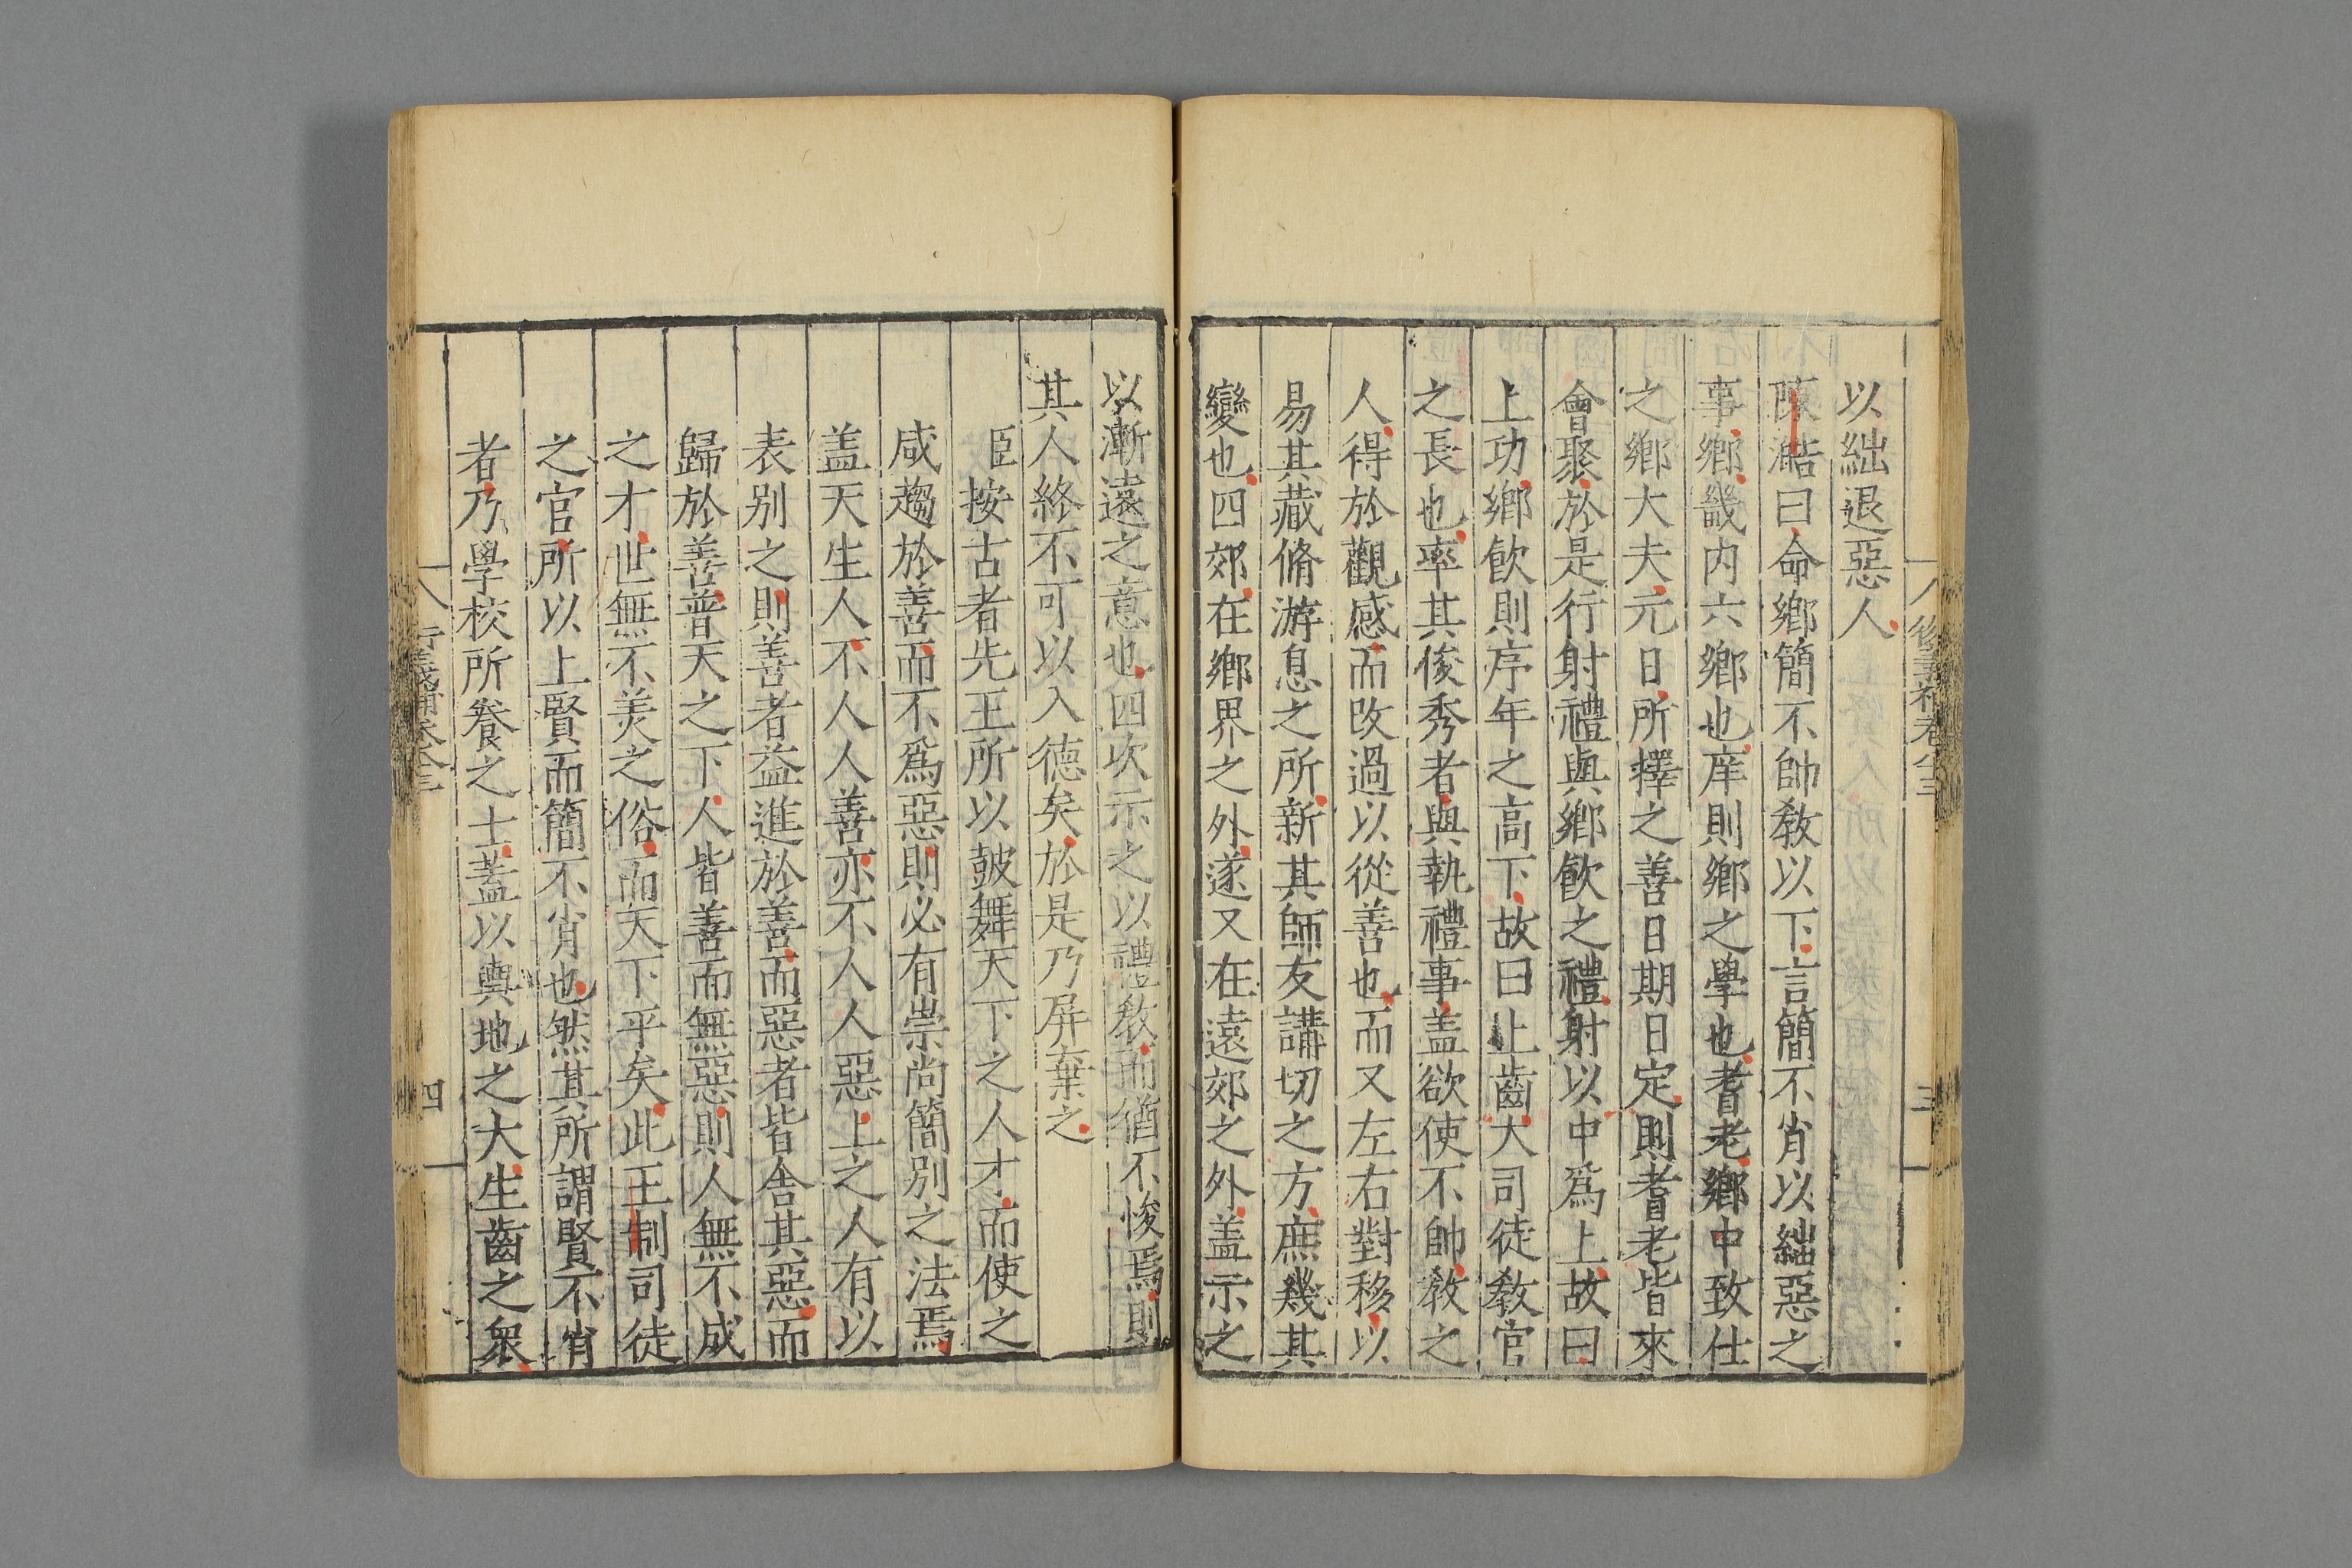 以絀退惡人
陳澔曰命鄉簡不帥教以下言簡不肖以絀惡之
事鄉畿内六鄉也庠則鄉之學也耆老鄉中致仕
之鄉大夫元日所擇之善日期日定則耆老皆來
會聚於是行射禮與鄉飲之禮射以中爲上故曰
上功鄉飲則序年之高下故曰上齒大司徒教官
之長也率其俊秀者與執禮事盖欲使不帥教之
人得於觀感而改過以從善也而又左右對移以
易其藏脩游息之所新其師友講切之方庶幾其
變也四郊在鄉界之外遂又在遠郊之外盖示之
三
以漸遠之意也四次示之以禮教而猶不悛焉則
其人終不可以入德矣於是乃屏棄之
臣按古者先王所以鼓舞天下之人才而使之
咸趨於善而不爲惡則必有崇尚簡別之法焉
盖天生人不人人善亦不人人惡上之人有以
表别之則善者益進於善而惡者皆舍其惡而
歸於善普天之下人皆善而無惡則人無不成
之才世無不美之俗而天下平矣此王制司徒
之官所以上賢而簡不肖也然其所謂賢不肖
者乃學校所養之士盖以輿地之大生齒之衆
行義補卷八十三
四